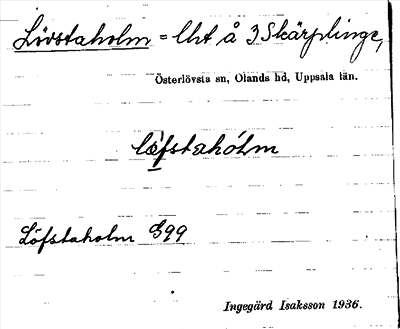 Lövstaholm = lht å 3 Skärplinge,
Österlövsta sn, Olands hd, Uppsala län.
Löfstaholm
Ingegärd Isaksson 1936.